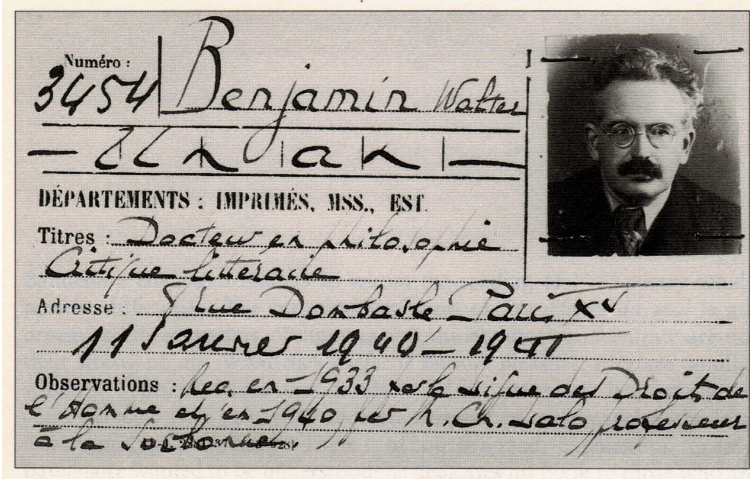 Numéro :
3454 Benjamin Walter
DÉPARTEMENTS : IMPRIMÉS, MSS., EST.
Titres : Docteur en philosophie
Critique litteraire
Adresse : rue Dombasle Paris XV
11 Janvier 1940 - 1941
Observations : Rec. en 1933 par la Ligue des Droits de
l'Homme et en 1940 par M. Ch. Lalo professeur
à la Sorbonne